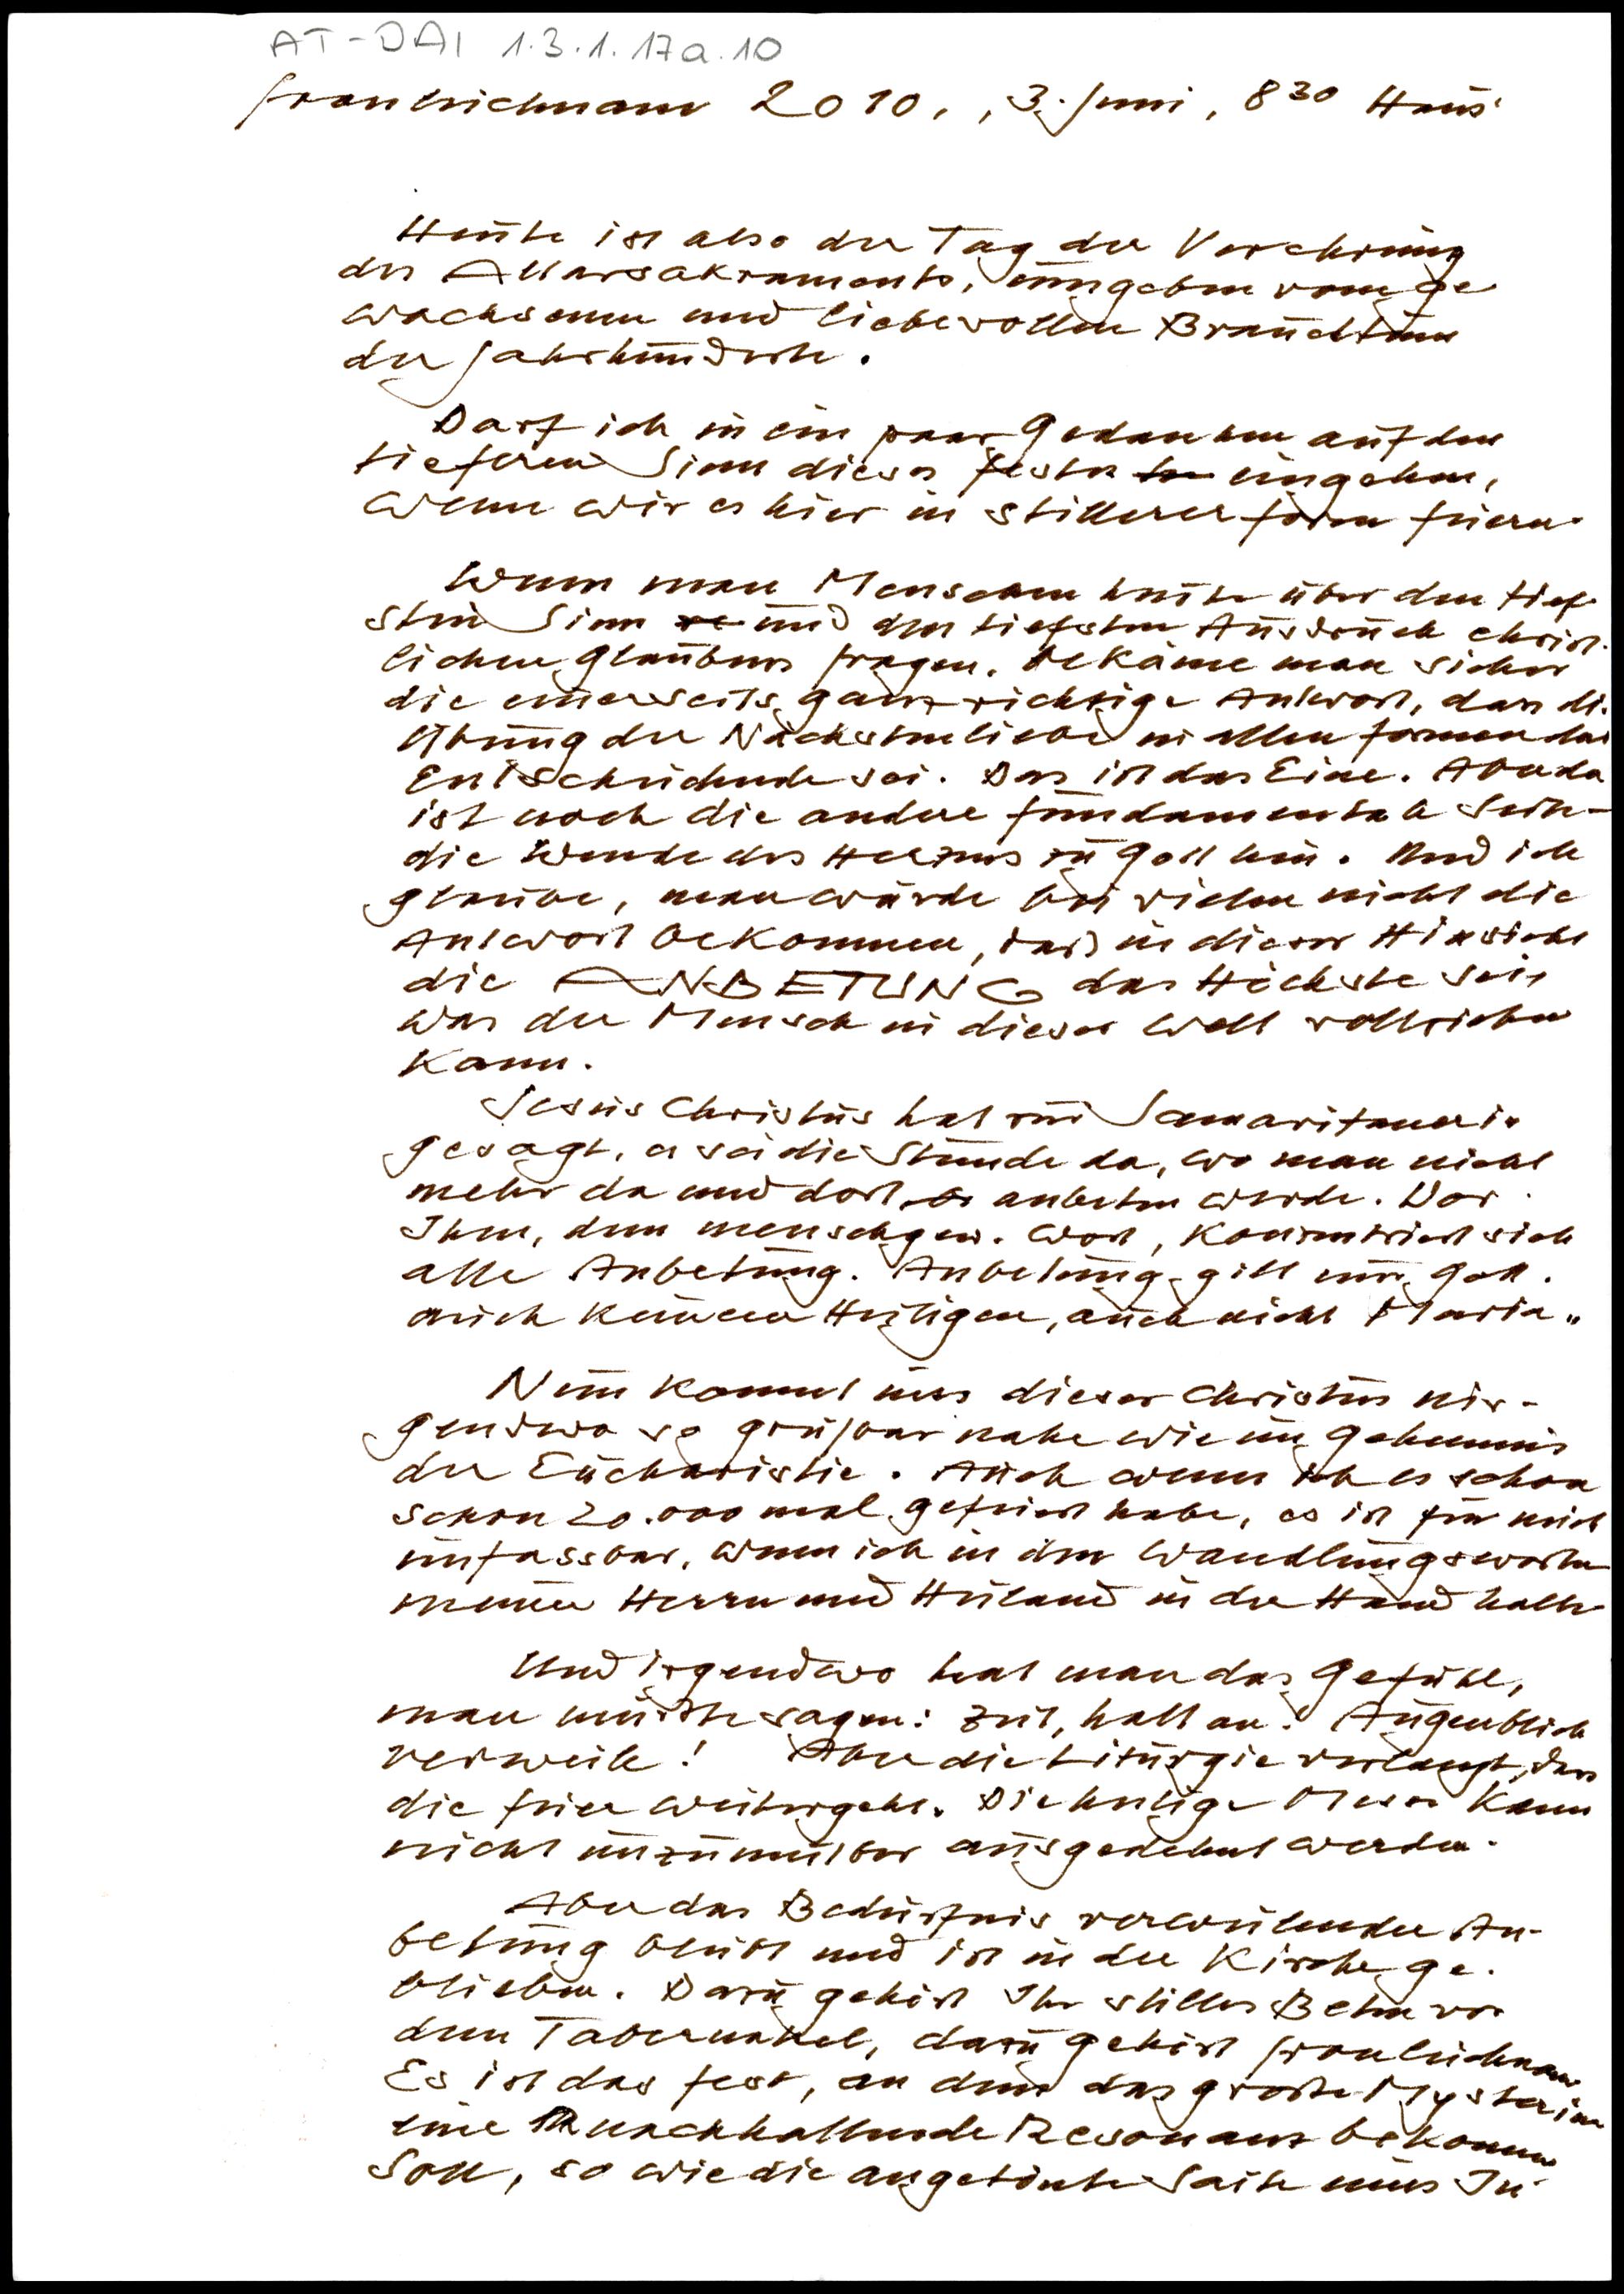 AT-DAI 1.3.1.17a.10
Fronleichnam 2010, , 3. Juni, 8 30 Haus
Heute ist also der Tag der Verehrung
des Altarsakraments, umgeben vom ge
wachsenen und liebevollen Brauchtum
der Jahrhunderte.
Darf ich in ein paar Gedanken auf den
tieferen Sinn dieses Festes eingehen,
wenn wir es hier in stillerer Form feiern.
Wenn man Menschen heute über den tief
sten Sinn und den tiefsten Ausdruck christ.
lichen Glaubens fragen, bekäme man sicher
die einerseits ganz richtige Antwort, dass di.
Übung der Nächstenliebe in allen Formen das
Entscheidende sei. Das ist das Eine. Aber da
ist noch die andere fundamentale Seite-
die Wende des Herzens zu Gott hin. Und ich
glaube, man würde bei vielen nicht die
Antwort bekommen, dass in dieser Hinsicht
die ANBETUNG das Höchste sei,
was der Mensch in dieser Welt vollziehen
kann.
Jesus Christus hat zur Samaritanerin
gesagt, es sei die Stunde da, wo man nicht
mehr da und dort anbeten werde. Vor
Ihm, dem menschgew. Wort, konzentriert sich
alle Anbetung. Anbetung gilt nur Gott.
auch keinem Heiligen, auch nicht Maria..
Nun kommt uns dieser Christus nir-
gendwo so greifbar nahe wie im Geheimnis
der Eucharistie. Auch wenn ich es schon
schon 20.000 mal gefeiert habe, es ist für mich
unfassbar, wenn ich in den Wandlungsworten
meinen Herrn und Heiland in der Hand halte
Und irgendwo hat man das Gefühl,
man müsste sagen: Zeit, halt an! Augenblick
verweile! Aber die Liturgie verlangt, dass
die Feier weitergeht. Die heilige Messe kann
nicht unzumutbar ausgedehnt werden.
Aber das Bedürfnis verweilender An-
betung bleibt und ist in der Kirche ge.
blieben. Dazu gehört Ihr stilles Beten vor
dem Tabernakel, dazu gehört Fronleichnam
Es ist das Fest, an dem das große Mysterium
eine nachhallende Resonanz bekommen
soll, so wie die angetönte Saite eines In-